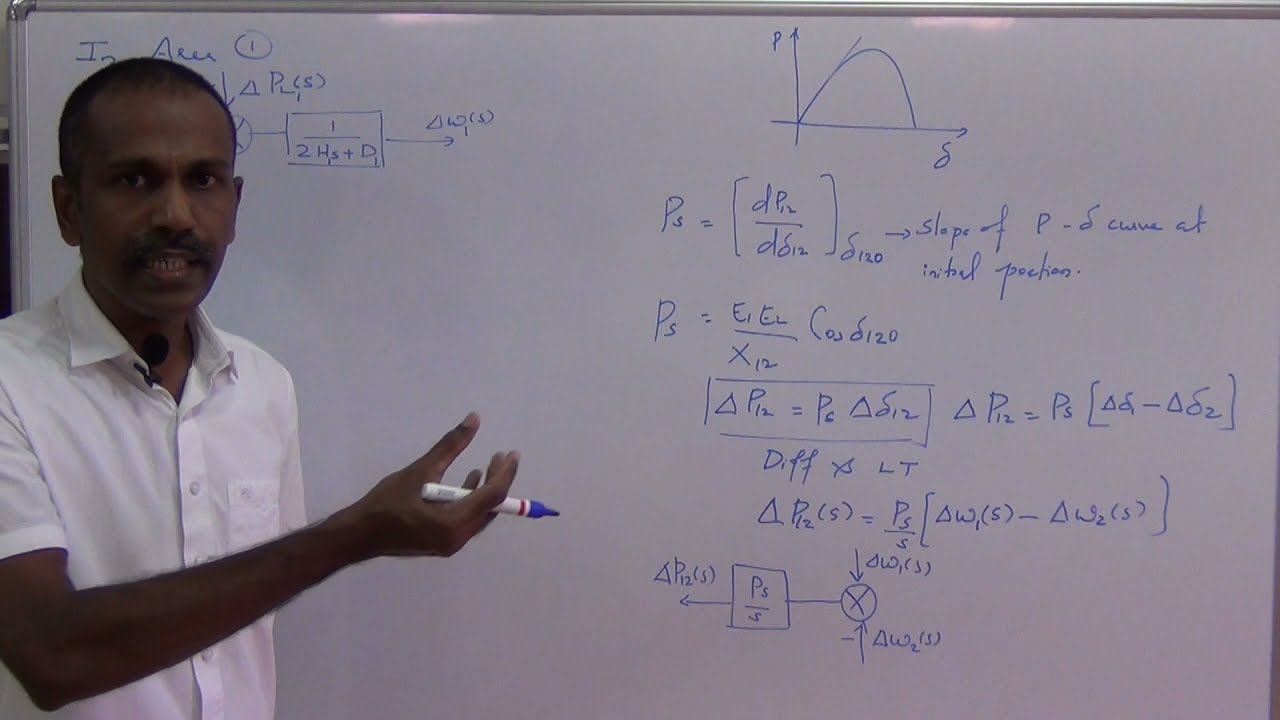 In Area ①
Δ PL₁(s)
1
2 H₁s + D₁
Δω₁(s)
P
δ
Ps = [dP₁₂ / dδ₁₂] δ120 → Slope of P - δ curve at
initial portion.
Ps = E₁ E₂ / X₁₂ Cos δ120
Δ P₁₂ = Ps Δδ₁₂
Δ P₁₂ = Ps [Δδ₁ - Δδ₂]
Diff & LT
Δ P₁₂(s) = Ps/s [Δω₁(s) - Δω₂(s)]
ΔP₁₂(s)
Ps
s
Δω₁(s)
X
- Δω₂(s)